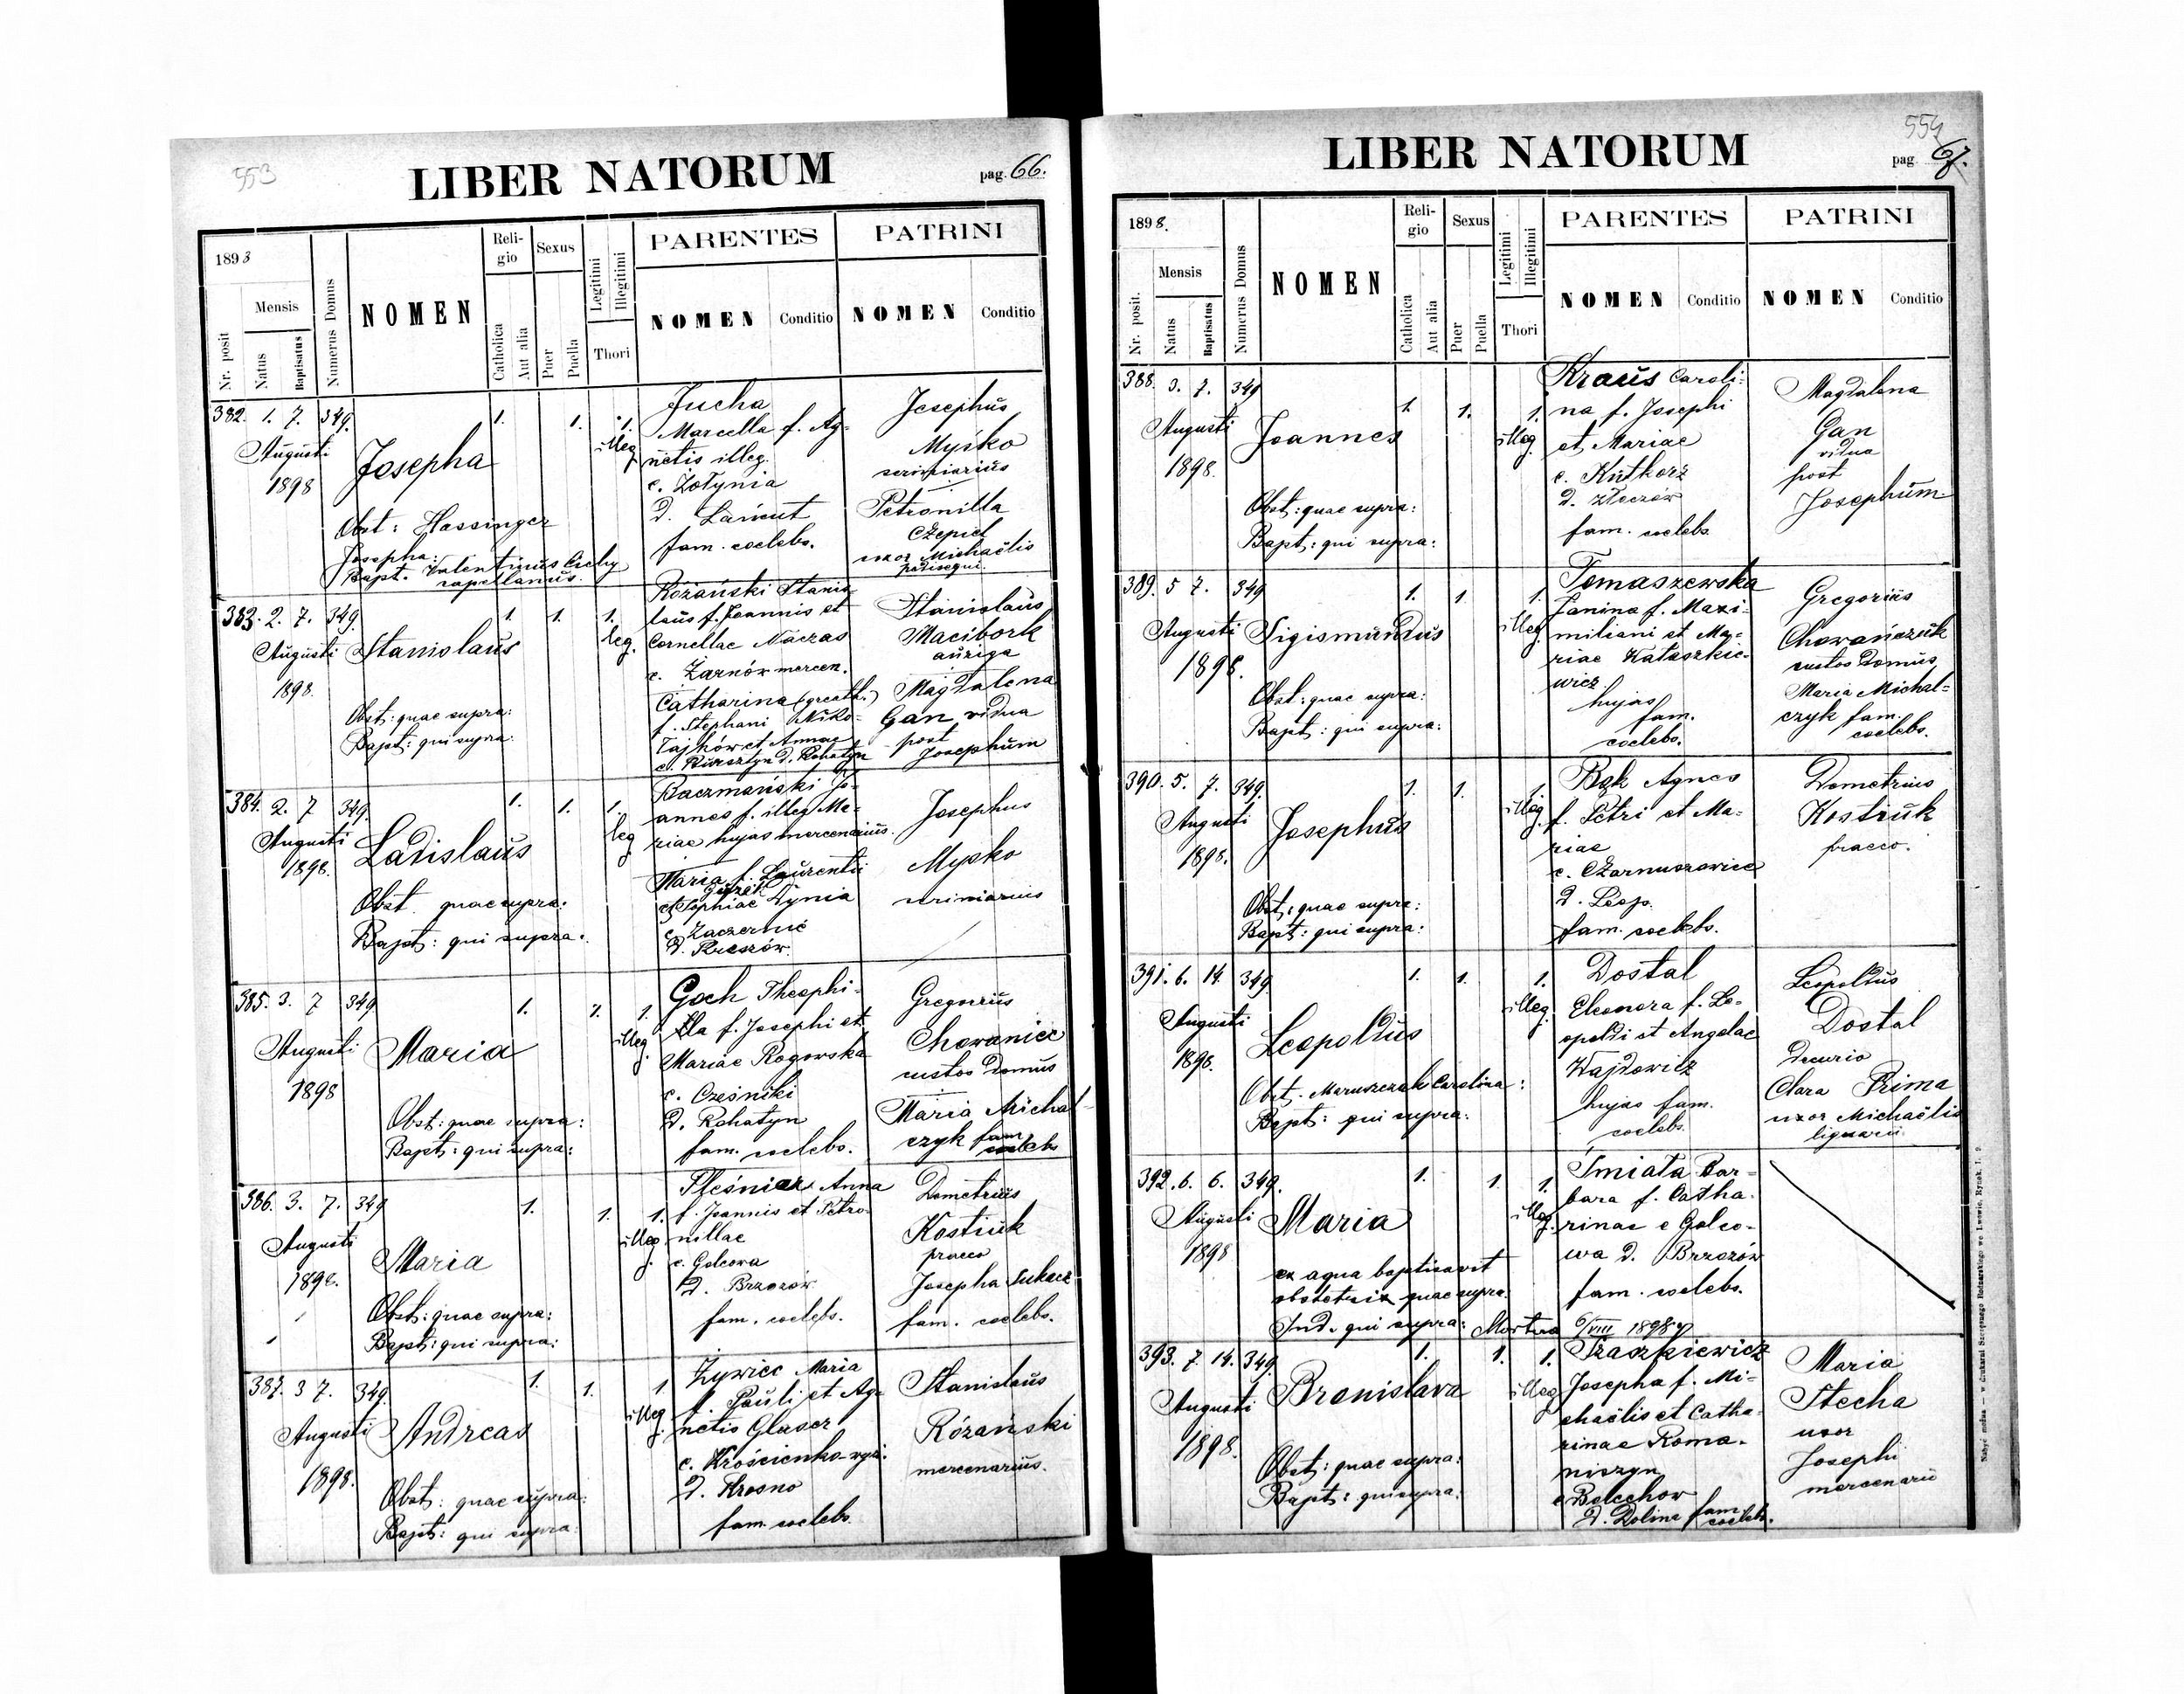 553
LIBER NATORUM
pag. 66.
1898
Nr. posit
Mensis
Natus
Baptisatus
Numerus Domus
NOMEN
Reli-
gio
Catholica
Aut alia
Sexus
Puer
Puella
Legitimi
Illegitimi
Thori
PARENTES
NOMEN
Conditio
PATRINI
NOMEN
Conditio
382. 1. 7. 349.
Augusti
1898
Josepha
Obst: Hassinger
Josepha:
Bapt. Valentinus Cichy
capellanus.
1. 1. 1.
illeg.
Jucha
Marcella f. Ag-
netis illeg.
e. Żołynia
d. Łańcut
fam. coelebs.
Josephus
Myśko
scriniarius
Petronilla
Czepiel
uxor Michaëlis
pedisequi.
383. 2. 7. 349.
Augusti
1898.
Stanislaus
Obst: quae supra:
Bapt: qui supra:
1. 1. 1.
leg.
Różański Stanis-
laus f. Joannis et
Cornellae Naczas
e. Żarnów mercen.
Catharina (greath.)
f. Stephani Niko-
łajków et Annae
e. Kunsztyn d. Rohatyn
Stanislaus
Macibork
auriga
Magdalena
Gan vidua
post
Josephum
384. 2. 7 349.
Augusti
1898.
Ladislaus
Obst. quae supra:
Bapt: qui supra:
1. 1. 1.
leg
Kaczmański Jo-
annes f. illeg. Ma-
riae hujas mercenarius.
Maria f. Laurentii
Guzek
et Sophiae Dynia
e. Zaczernie
d. Rzeszów.
Josephus
Mysko
scriniarius
385. 3. 7 349
Augusti
1898
Maria
Obst: quae supra:
Bapt: qui supra:
1. 1. 1.
illeg.
Goch Theophi-
la f. Josephi et
Mariae Rogowska
e. Cześniki
d. Rohatyn
fam. coelebs.
Gregorius
Chowaniec
custos domus
Maria Michal-
czyk fam.
coelebs
386. 3. 7. 349
Augusti
1898.
Maria
Obst: quae supra:
Bapt: qui supra:
1. 1. 1.
illeg.
Pleśniar Anna
f. Joannis et Petro-
nillae
e. Golcowa
d. Brzozów
fam. coelebs.
Demetrius
Kostiuk
praeco
Josepha Łukacz
fam. coelebs.
387. 3 7. 349.
Augusti
1898.
Andreas
Obst: quae supra:
Bapt: qui supra:
1. 1. 1.
illeg.
Żywiec Maria
f. Pauli et Ag-
netis Glaser
e. Krościenko-wyż.
d. Krosno
fam. coelebs.
Stanislaus
Różański
mercenarius.
554
LIBER NATORUM
pag. 67.
1898.
Nr. posit.
Mensis
Natus
Baptisatus
Numerus Domus
NOMEN
Reli-
gio
Catholica
Aut alia
Sexus
Puer
Puella
Legitimi
Illegitimi
Thori
PARENTES
NOMEN
Conditio
PATRINI
NOMEN
Conditio
388. 3. 7. 349
Augusti
1898.
Joannes
Obst: quae supra:
Bapt: qui supra:
1. 1. 1.
illeg.
Kraus Caroli-
na f. Josephi
et Mariae
e. Kutkorz
d. Złoczów
fam. coelebs.
Magdalena
Gan
vidua
post
Josephum.
389. 5 7. 349
Augusti
1898.
Sigismundus
Obst: quae supra:
Bapt: qui supra:
1. 1 1.
illeg.
Tomaszewska
Janina f. Maxi-
miliani et Ma-
riae Kataszkie-
wicz
hujas
fam.
coelebs.
Gregorius
Chowańczuk
custos domus
Maria Michal-
czyk fam.
coelebs.
390. 5. 7. 349.
Augusti
1898.
Josephus
Obst: quae supra:
Bapt: qui supra:
1. 1. 1.
illeg.
Bąk Agnes
f. Petri et Ma-
riae
e. Czarnuszowice
d. Léop.
fam. coelebs.
Demetrius
Kostiuk
praeco.
391. 6. 14. 349
Augusti
1898.
Leopoldus
Obst. Maruszczak Carolina:
Bapt: qui supra:
1. 1. 1.
illeg.
Dostal
Eleonora f. Le-
opoldi et Angelae
Wajdowicz
hujas fam.
coelebs.
Leopoldus
Dostal
Decurio
Clara Prima
uxor Michaëlis
lignarii
392. 6. 6. 349.
Augusti
1898
Maria
ex aqua baptisavit
obstetrix quae supra.
Ind. qui supra: Mortua 6/VIII 1898
1. 1. 1.
illeg.
Śmiała Bar-
bara f. Catha-
rinae e Golco-
wa d. Brzozów
fam. coelebs.
393. 7. 14. 349.
Augusti
1898.
Bronislava
Obst: quae supra:
Bapt: qui supra:
1. 1. 1.
illeg.
Traszkiewicz
Josepha f. Mi-
chaëlis et Catha-
rinae Roma-
niszyn
e Bolechow
d. Dolina fam.
coelebs.
Maria
Stecha
uxor
Josephi
mercenarii
Nabyć można — w drukarni Szczęsnego Bednarskiego we Lwowie, Rynek l. 9.